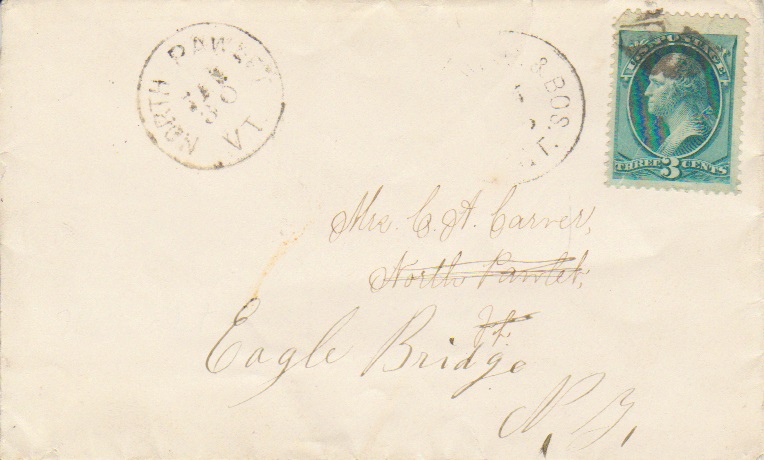 NORTH PAWLET
JAN
30
& BOS.
U.S. POSTAGE
THREE 3 CENTS
Mrs. C. A. Carver,
North Pawlet,
Vt.
Eagle Bridge
N. Y.